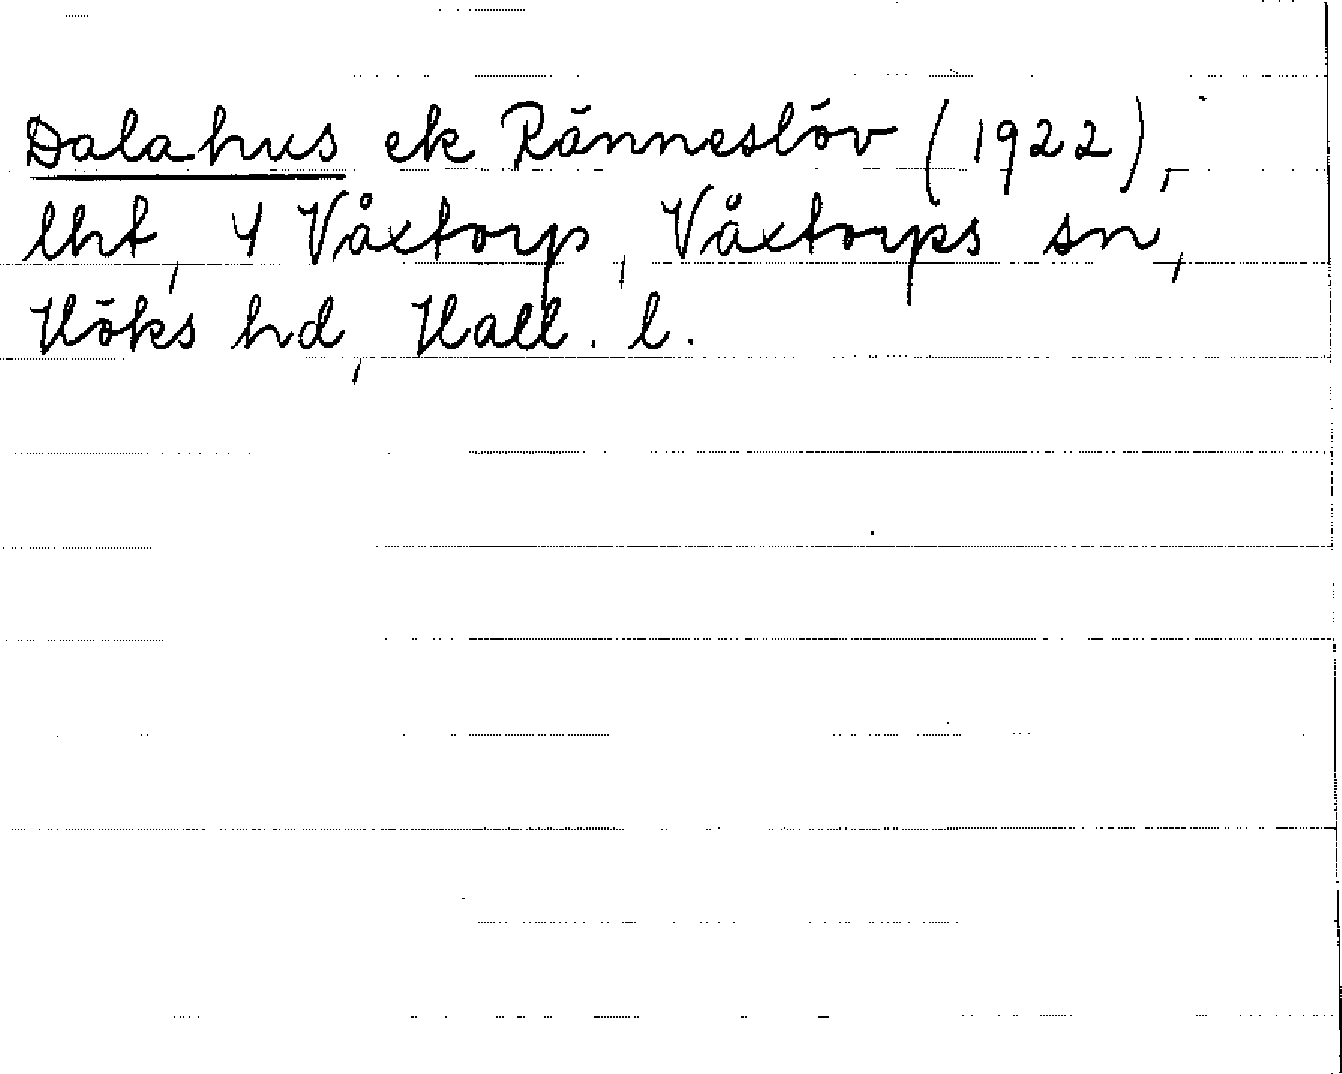 Dalahus ek Ränneslöv (1922),
lht, 4 Våxtorp, Våxtorps sn,
Höks hd, Hall. l.